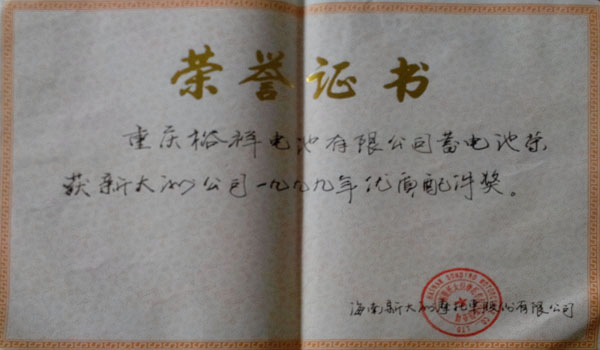 荣誉证书
重庆裕祥电池有限公司蓄电池荣
获新大洲公司一九九九年优质配件奖。
海南新大洲摩托车股份有限公司